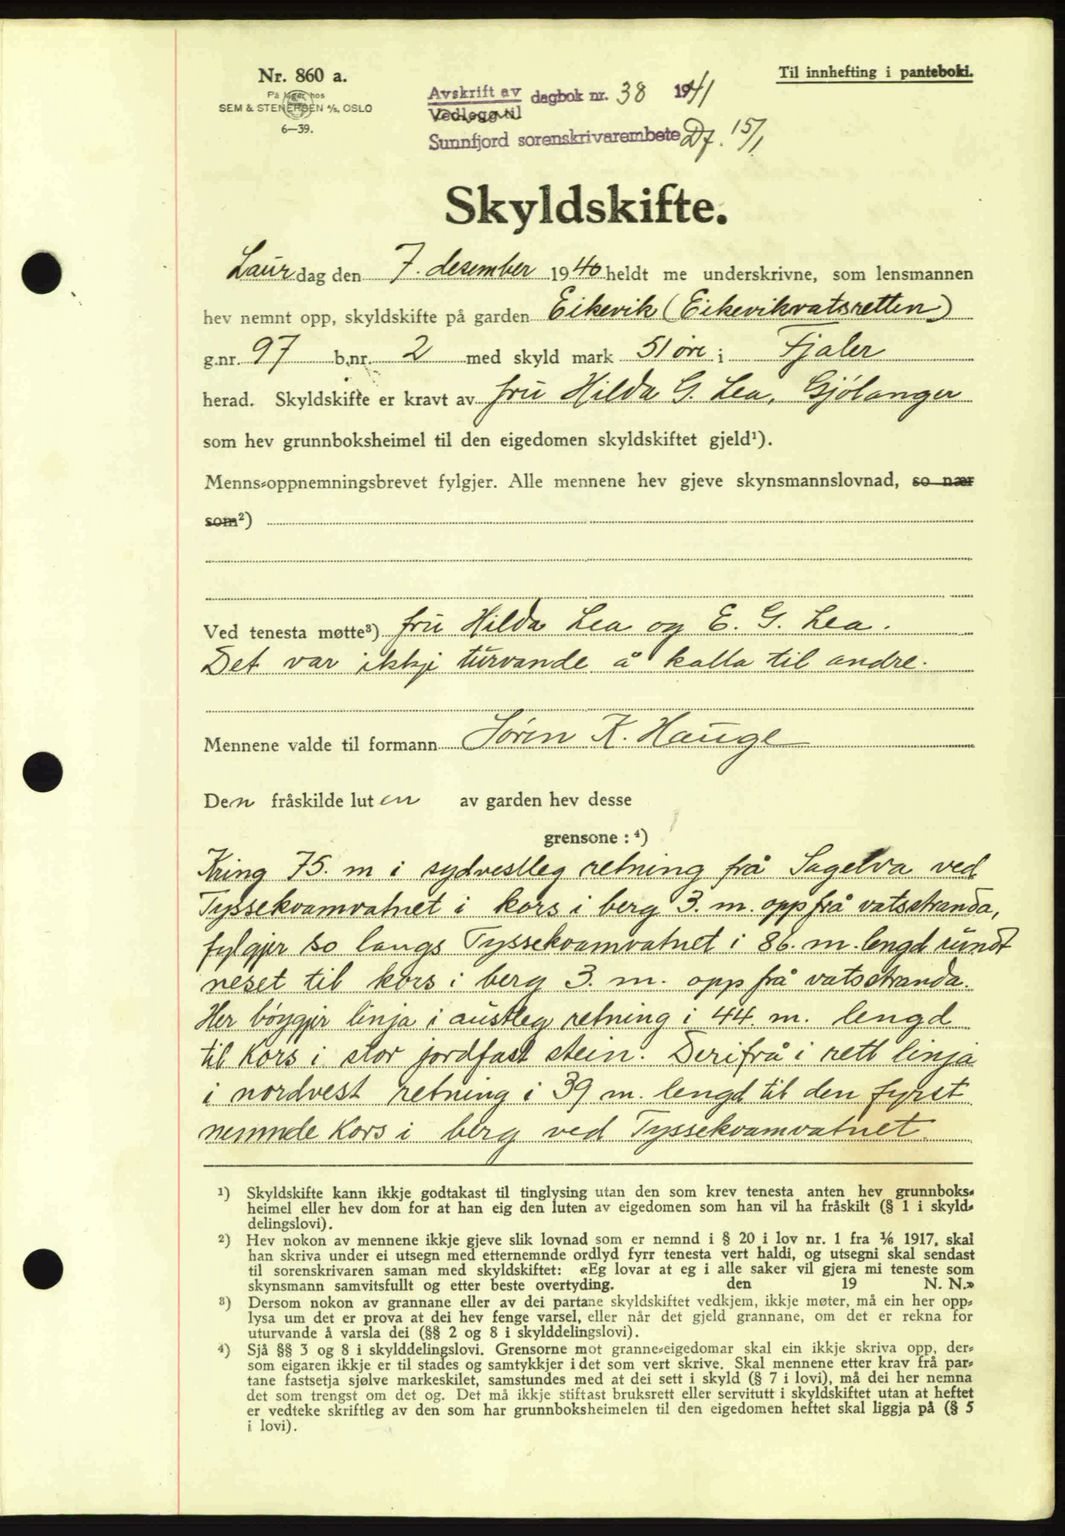 Nr. 860 a.
På lager hos
SEM & STENERSEN A/S, OSLO
6—39.
Til innhefting i panteboki.
Avskrift av dagbok nr. 38 1941
Vedlegg til
Sunnfjord sorenskrivarembete Df. 15/1
Skyldskifte.
Laurdag den 7. desember 1940 heldt me underskrivne, som lensmannen
hev nemnt opp, skyldskifte på garden Eikevik (Eikevikvatsretten)
g.nr. 97 b.nr. 2 med skyld mark 51 öre i Fjaler
herad. Skyldskifte er kravt av fru Hilda G. Lea, Gjölanger
som hev grunnboksheimel til den eigedomen skyldskiftet gjeld¹).
Menns-oppnemningsbrevet fylgjer. Alle mennene hev gjeve skynsmannslovnad, so nær
som²)
Ved tenesta møtte³) fru Hilda Lea og E. G. Lea.
Det var ikkje turvande å kalla til andre.
Mennene valde til formann Sörin K. Hauge
Den fråskilde luten av garden hev desse
grensone : ⁴)
Kring 75. m i sydvestleg retning frå Sagelva ved
Tyssekvamvatnet i kors i berg 3. m. opp frå vatsstranda,
fylgjer so langs Tyssekvamvatnet i 86. m. lengd rundt
neset til kors i berg 3. m. opp frå vatsstranda.
Her böygjer linja i austleg retning i 44. m. lengd
til kors i stor jordfast stein. Derifrå i rett linja
i nordvest retning i 39 m. lengd til den fyrst
nemnde kors i berg ved Tyssekvamvatnet.
¹) Skyldskifte kann ikkje godtakast til tinglysing utan den som krev tenesta anten hev grunnboks-
heimel eller hev dom for at han eig den luten av eigedomen som han vil ha fråskilt (§ 1 i skyld-
delingslovi).
²) Hev nokon av mennene ikkje gjeve slik lovnad som er nemnd i § 20 i lov nr. 1 fra 1/6 1917, skal
han skriva under ei utsegn med etternemnde ordlyd fyrr tenesta vert haldi, og utsegni skal sendast
til sorenskrivaren saman med skyldskiftet: «Eg lovar at eg i alle saker vil gjera mi teneste som
skynsmann samvitsfullt og etter beste overtyding. den 19 N. N.»
³) Dersom nokon av grannane eller av dei partane skyldskiftet vedkjem, ikkje møter, må ein her opp-
lysa um det er prova at dei hev fenge varsel, eller når det gjeld grannane, om det er rekna for
uturvande å varsla dei (§§ 2 og 8 i skylddelingslovi).
⁴) Sjå §§ 3 og 8 i skylddelingslovi. Grensorne mot granne-eigedomar skal ein ikkje skriva opp, der-
som eigaren ikkje er til stades og samtykkjer i det som vert skrive. Skal mennene etter krav frå par-
tane fastsetja sjølve markeskilet, samstundes med at dei sett i skyld (§ 7 i lovi), må dei her nemna
det som trengst om det og. Det må ikkje stiftast bruksrett eller servitutt i skyldskiftet utan at heftet
er vedteke skriftleg av den som har grunnboksheimelen til den eigedomen heftet skal liggja på (§ 5
i lovi).